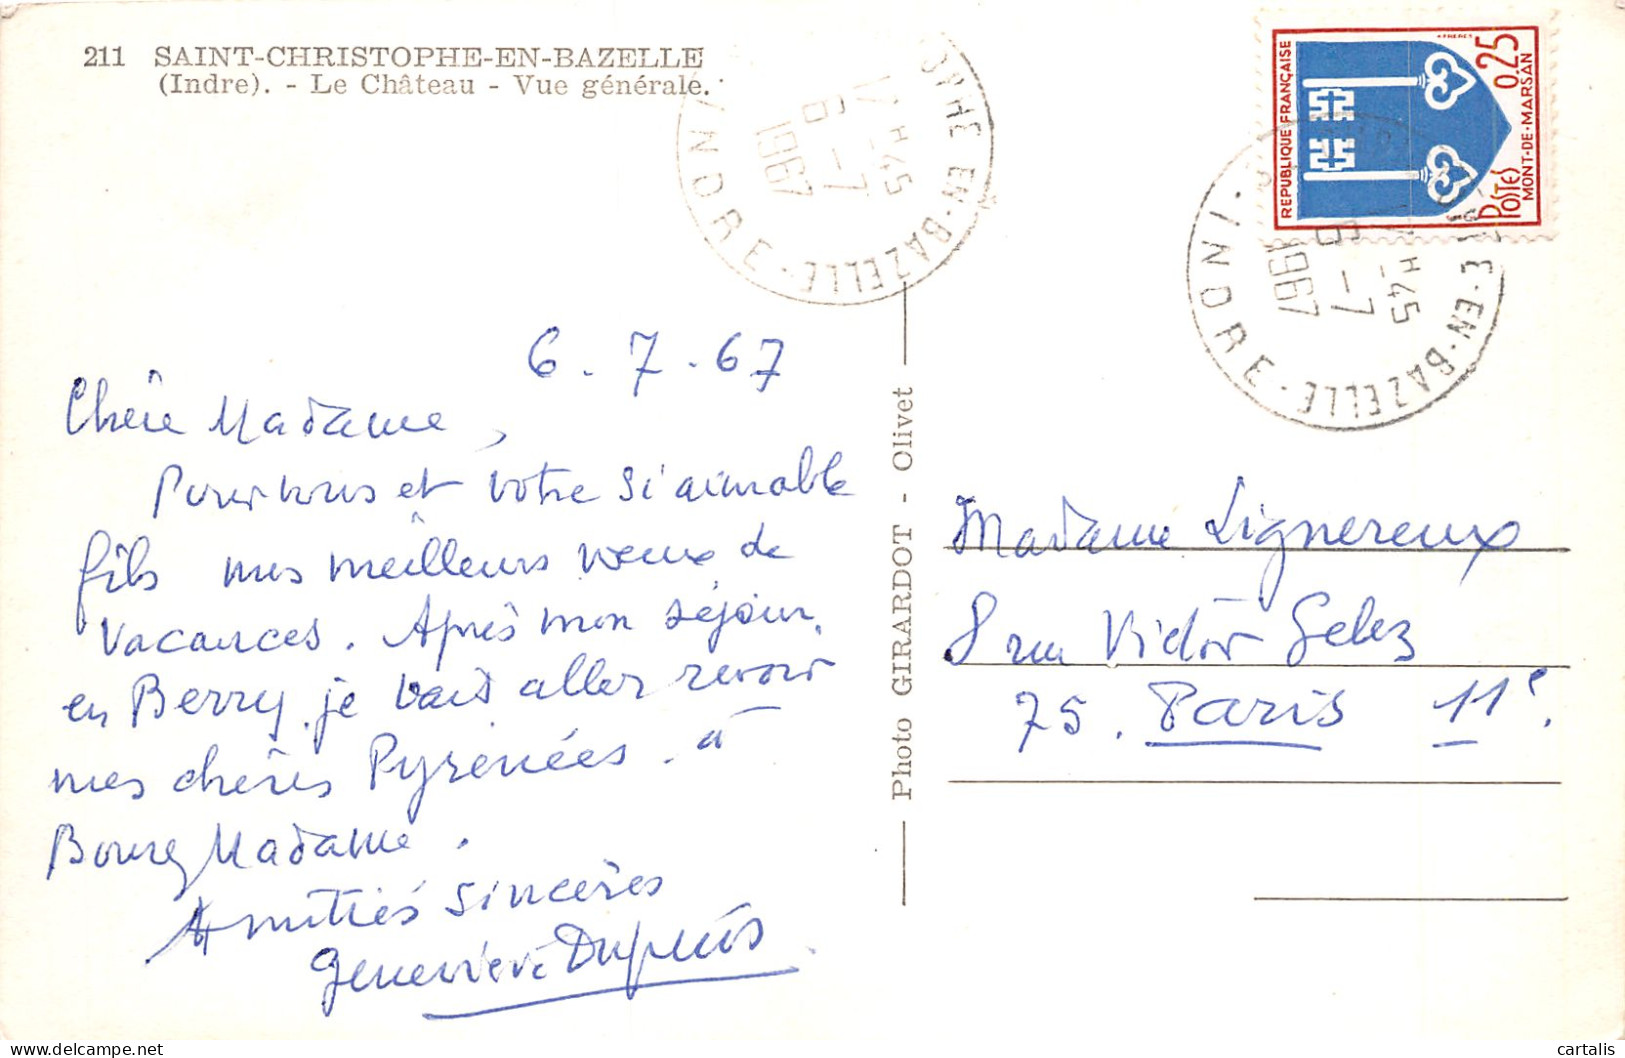 211 SAINT-CHRISTOPHE-EN-BAZELLE
(Indre). - Le Château - Vue générale.
6 - 7 - 67
Chère Madame,
Pour vous et votre si aimable
fils mes meilleurs voeux de
vacances. Après mon séjour
en Berry, je vais aller revoir
mes chères Pyrénées. à
Bourg Madame.
Amitiés sincères
Geneviève Dupuis
Photo GIRARDOT - Olivet
OPHE EN-BAZELLE · INDRE
17 H 45
6 - 7
1967
REPUBLIQUE FRANÇAISE
0,25
POSTES
MONT-DE-MARSAN
PHE-EN-BAZELLE · INDRE ·
H 45
6 - 7
1967
Madame Lignereux
8 rue Victor Gelez
75. Paris 11e.
cartalis
delcampe.net